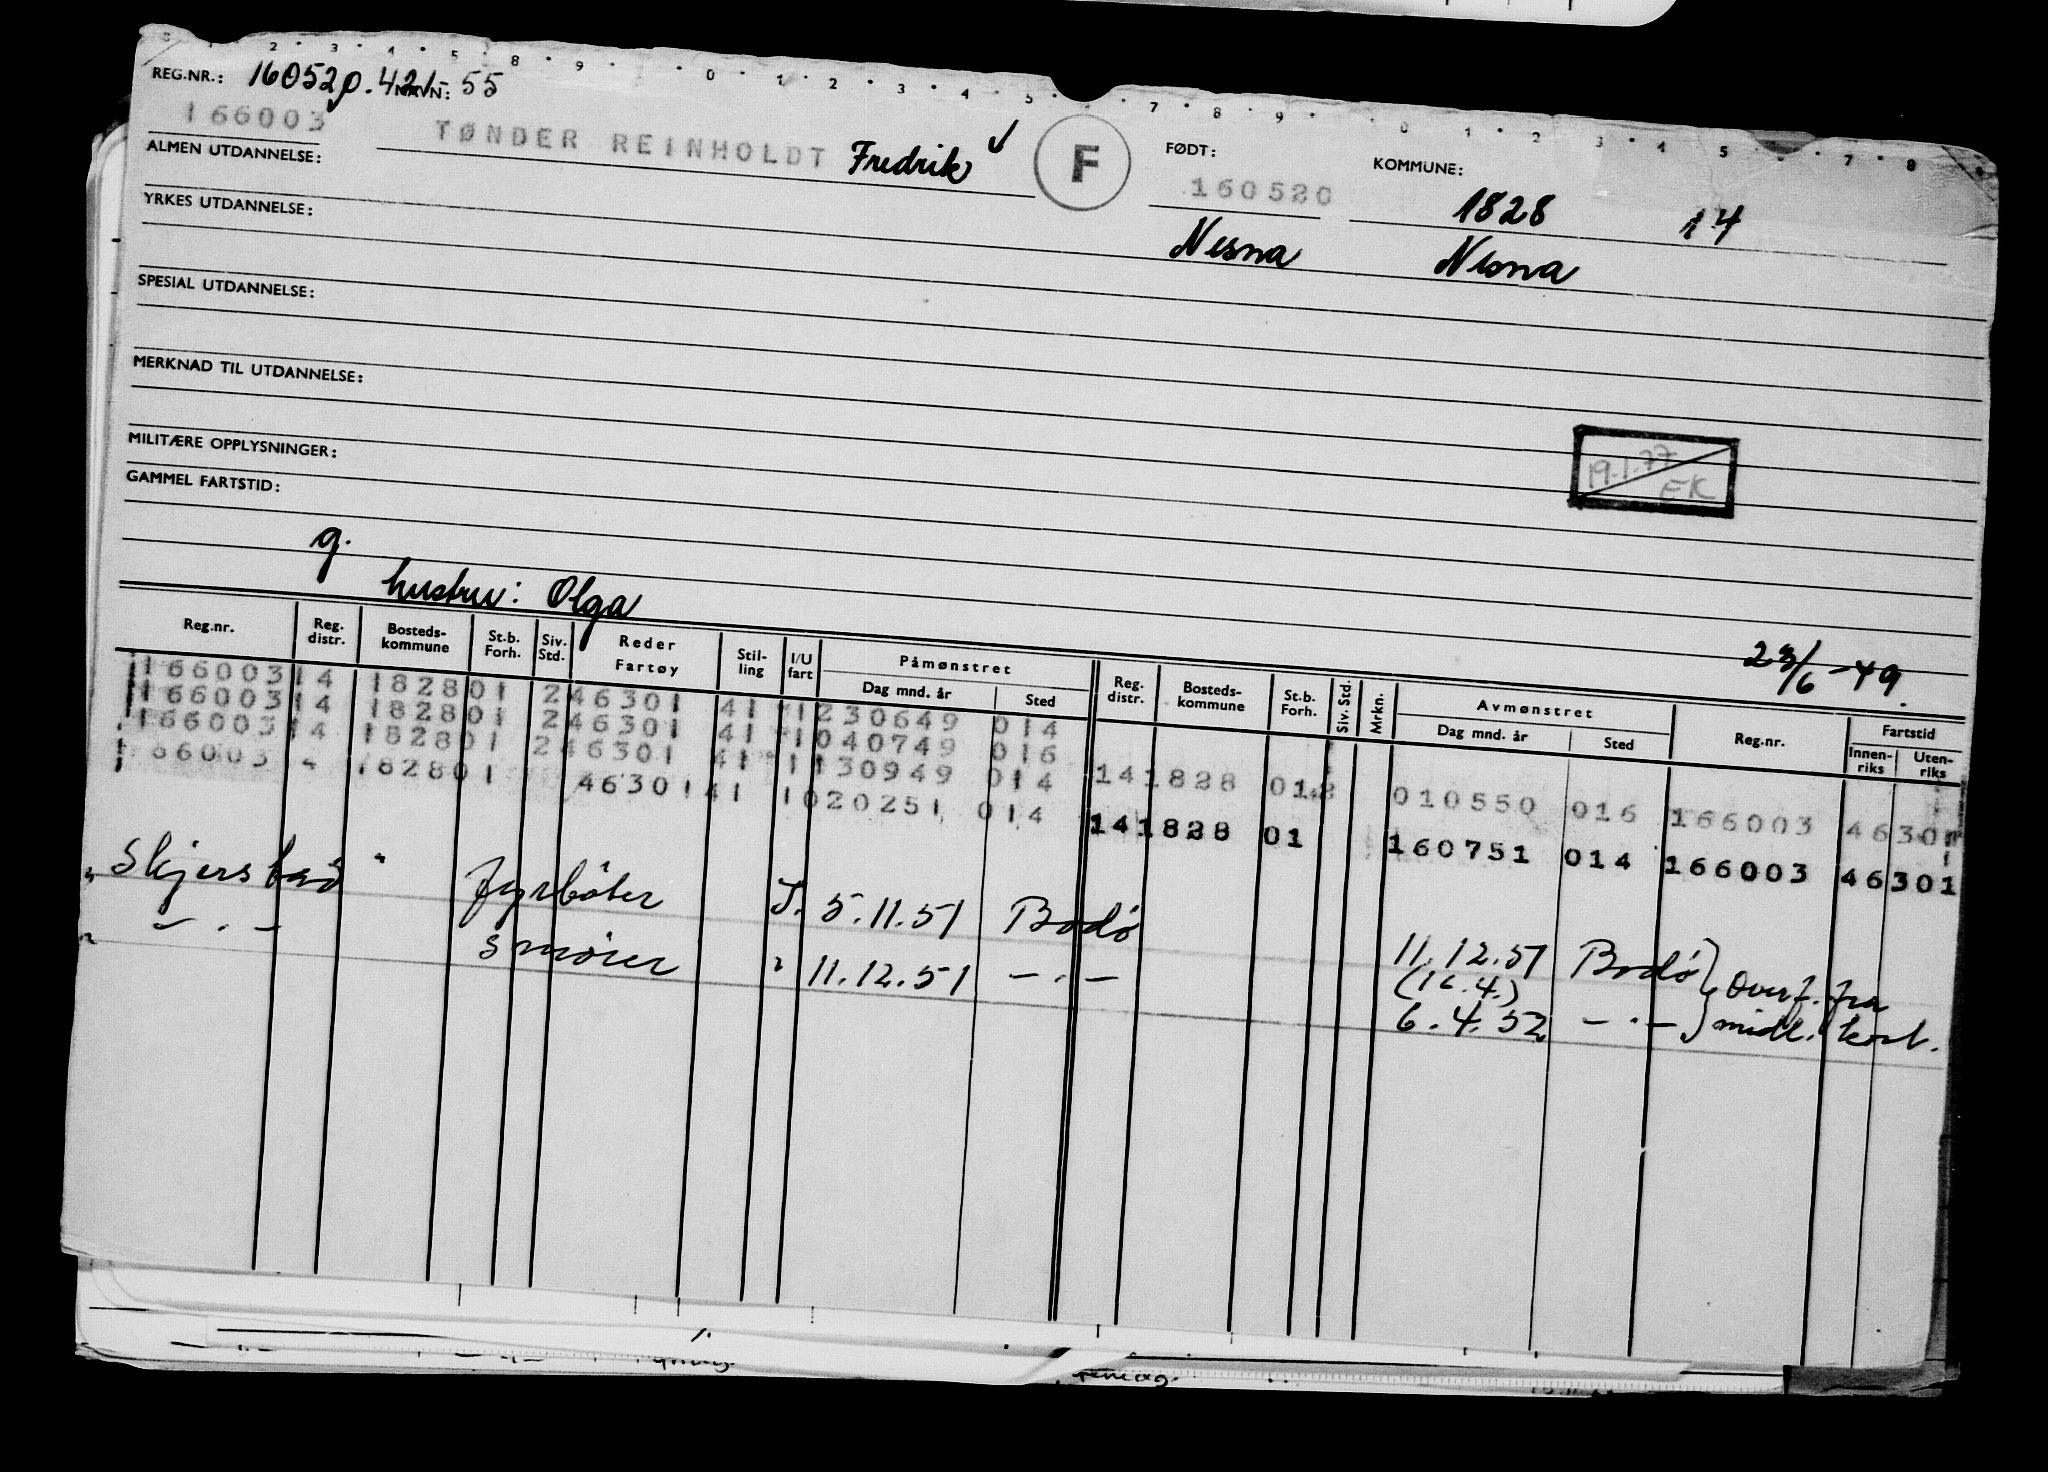 REG.NR.: 16052p.421-55 NAVN:
166003 TØNDER REINHOLDT Fredrik ✓ F FØDT: 160520 KOMMUNE: 1828 14
ALMEN UTDANNELSE:
Nesna Nesna
YRKES UTDANNELSE:
SPESIAL UTDANNELSE:
MERKNAD TIL UTDANNELSE:
19.1.77 EK
MILITÆRE OPPLYSNINGER:
GAMMEL FARTSTID:
g.
hustru: Olga
23/6-49.
Reg.nr. Reg. distr. Bosteds- kommune St.b. Forh. Siv. Std. Reder Fartøy Stil- ling I/U fart Påmønstret Dag mnd. år Sted Reg. distr. Bosteds- kommune St.b. Forh. Siv. Std. Mrkn. Avmønstret Dag mnd. år Sted Reg.nr. Fartstid Innen- riks Uten- riks
166003 14 1828 01 2 46301 41 1 230649 014
166003 14 1828 01 2 46301 41 1 040749 016
166003 14 1828 01 2 46301 41 1 130949 014 14 1828 01 2 010550 016 166003 46301
166003 4 1828 01 46301 41 1 020251 014 14 1828 01 160751 014 166003 46301
" Skjerstad " fyrbøter I. 5.11.51 Bodø 11.12.51 Bodø } Overf. fra
(16.4.)
" — . — smører " 11.12.51 — . — 6.4.52 — . — } midl. kort.